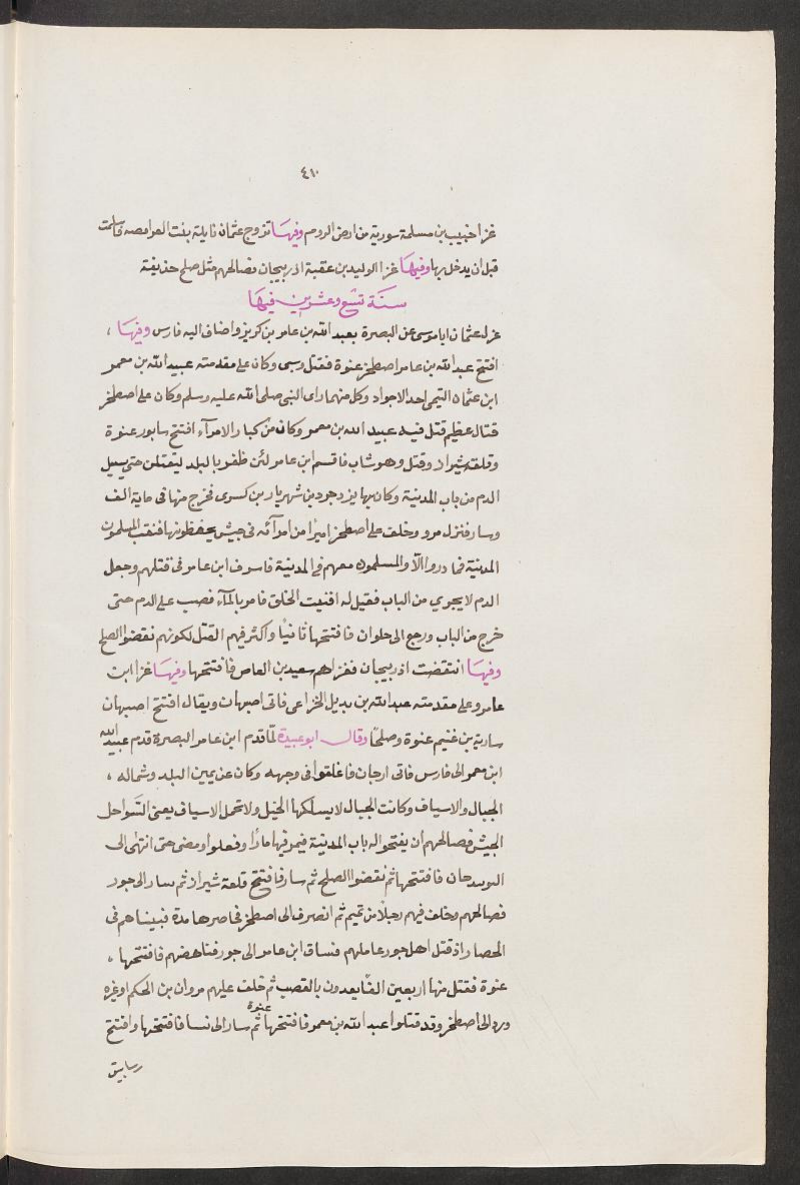 ٤١٠
غزا حبيب بن مسلمة سورية من ارض الروم وفيها تزوج عثمان نايلة بنت الفرافصه فاسلمت
قبل ان يدخل بها وفيها غزا الوليد بن عقبة اذربيجان فصالحهم مثل صلح حذيفة
سنة تسع وعشرين فيها
عزل عثمان ابا موسى عن البصرة بعبد الله بن عامر بن كريز واضاف اليه فارس وفيها ،
افتتح عبد الله بن عامر اصطخر عنوة فقتل وسبى وكان على مقدمته عبيد الله بن معمر
ابن عثمان التيمى احد الاجواد وكل منهما راى النبى صلى الله عليه وسلم وكان على اصطخر
قتال عظيم قتل فيه عبيد الله بن معمر وكان من كبار الامرآء افتتح سابور عنوة
وقلعة شيراز وقتل وهو شاب فاقسم ابن عامر لئن ظفر بالبلد ليقتلن حتى يسيل
الدم من باب المدينة وكان بها يزدجود بن شهريار بن كسرى فخرج منها فى ماية الف
وسار فنزل مرو وخلف على اصطخر اميرا من امرآئه فى جيش يحفظونها فنقب المسلمون
المدينة فما دروا الا والمسلمون معهم فى المدينة فاسرف ابن عامر فى قتلهم وجعل
الدم لا يجرى من الباب فقيل له افنيت الخلق فامر بالمآء فصب على الدم حتى
خرج من الباب ورجع الى حلوان فافتتحها ثانيا واكثر فيهم القتل لكونهم نقضوا الصلح
وفيها انتقضت اذربيجان فغزاهم سعيد بن العاص فافتتحها وفيها غزا ابن
عامر وعلى مقدمته عبد الله بن بديل الخزاعى فاتى اصبهان ويقال افتتح اصبهان
سارية بن غنيم عنوة وصلحا وقال ابو عبيدة لما قدم ابن عامر البصرة قدم عبيد الله
ابن معمر الى فارس فاتى ارجان فاغلقوا فى وجهه وكان عن يمين البلد وشماله ،
الجبال والاسياف وكانت الجبال لا يسلكها الخيل ولا تحمل الاسياف يعنى السواحل
الجيش فصالحهم ان يفتحوا له باب المدينة فيمر فيها مارا وفعلوا ومضى حتى انتهى الى
فافتتحها ثم نقضوا الصلح ثم سار فافتتح قلعة شيراز ثم سار الى جور
فصالحهم وخلف فيهم رجلا من تميم ثم انصرف الى اصطخر فحاصرها مدة فبيناهم فى
الحصار اذ قتل اهل جور عاملهم فساق ابن عامر الى جور فناهضهم فافتتحها ،
عنوة فقتل منها اربعين الفا يعدون بالقصب ثم خلف عليهم مروان بن الحكم او غيره
ورد الى اصطخر وقد قتلوا عبد الله بن معمر فافتتحها عنوة ثم سار الى نسا فافتتحها وافتتح
رساتيق